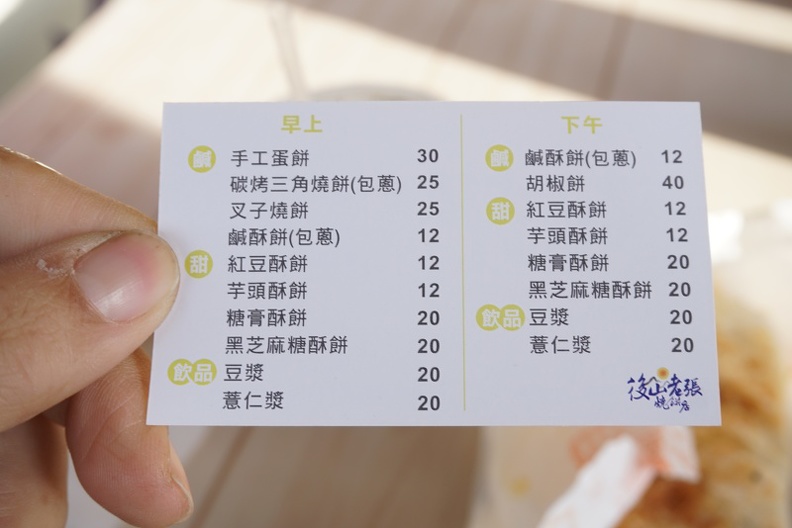 早上
鹹 手工蛋餅 30
碳烤三角燒餅(包蔥) 25
叉子燒餅 25
鹹酥餅(包蔥) 12
甜 紅豆酥餅 12
芋頭酥餅 12
糖膏酥餅 20
黑芝麻糖酥餅 20
飲品 豆漿 20
薏仁漿 20
下午
鹹 鹹酥餅(包蔥) 12
胡椒餅 40
甜 紅豆酥餅 12
芋頭酥餅 12
糖膏酥餅 20
黑芝麻糖酥餅 20
飲品 豆漿 20
薏仁漿 20
後山老張
燒餅店